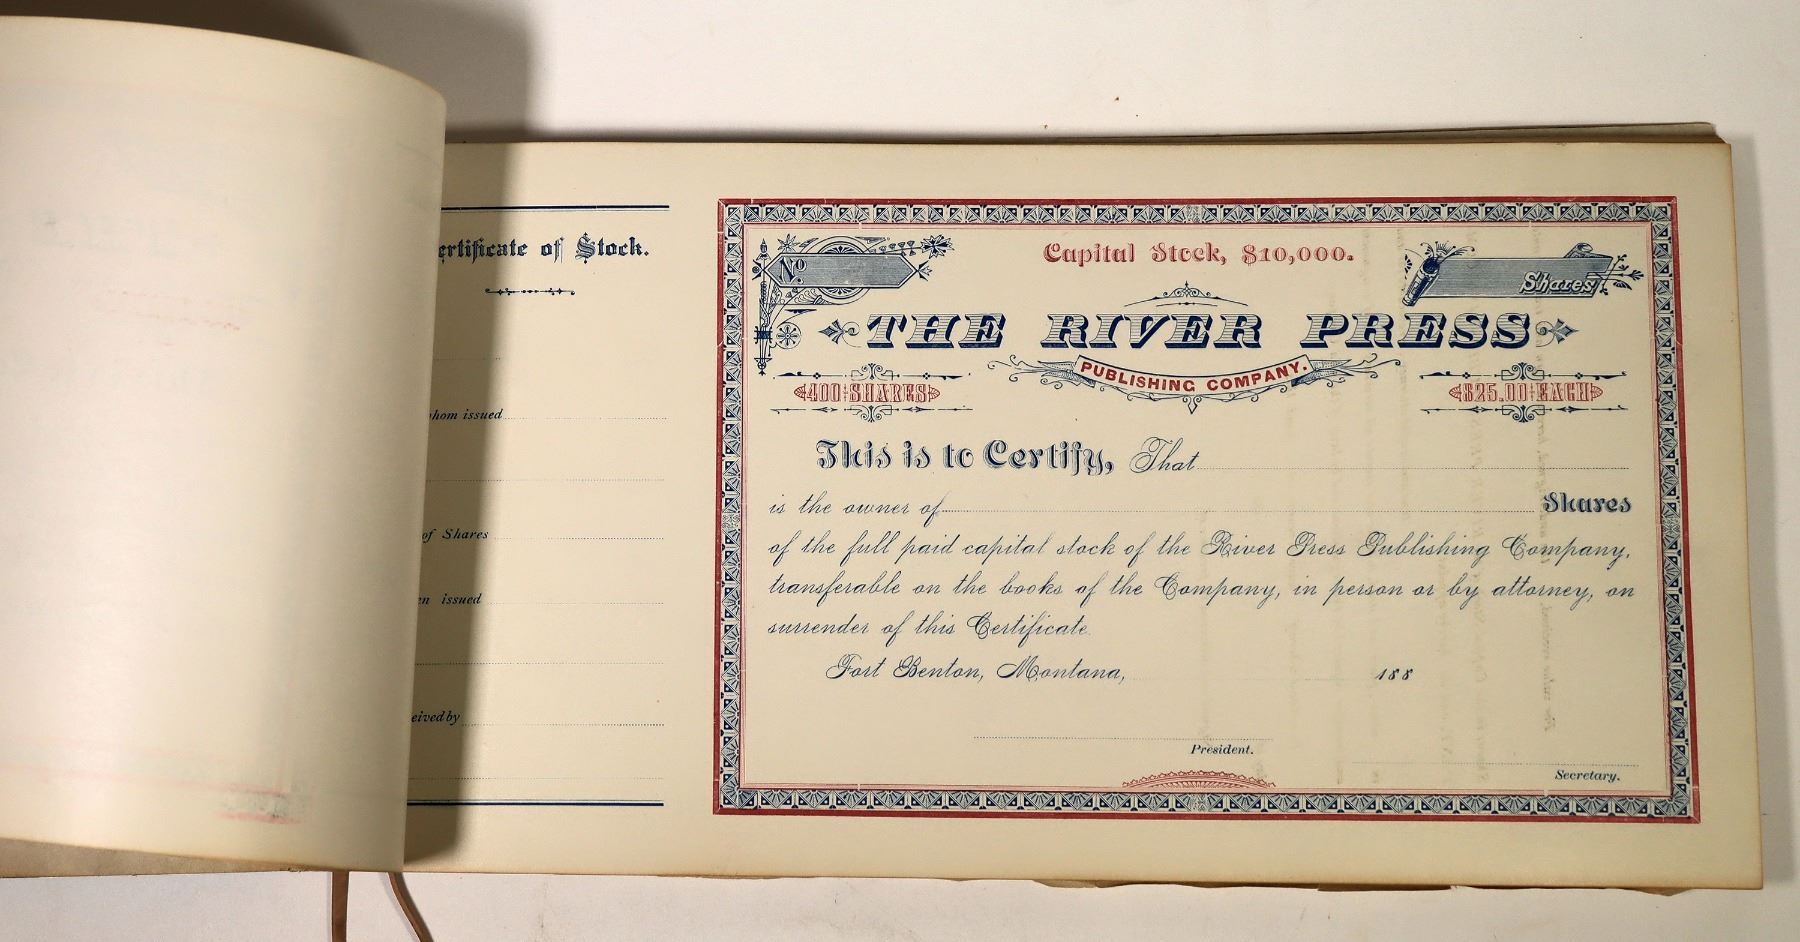 ertificate of Stock.
hom issued
of Shares
en issued
eived by
No
Capital Stock, $10,000.
Shares
THE RIVER PRESS
PUBLISHING COMPANY.
400 SHARES
$25.00 EACH
This is to Certify, That
is the owner of Shares
of the full paid capital stock of the River Press Publishing Company,
transferable on the books of the Company, in person or by attorney, on
surrender of this Certificate.
Fort Benton, Montana, 188
President.
Secretary.